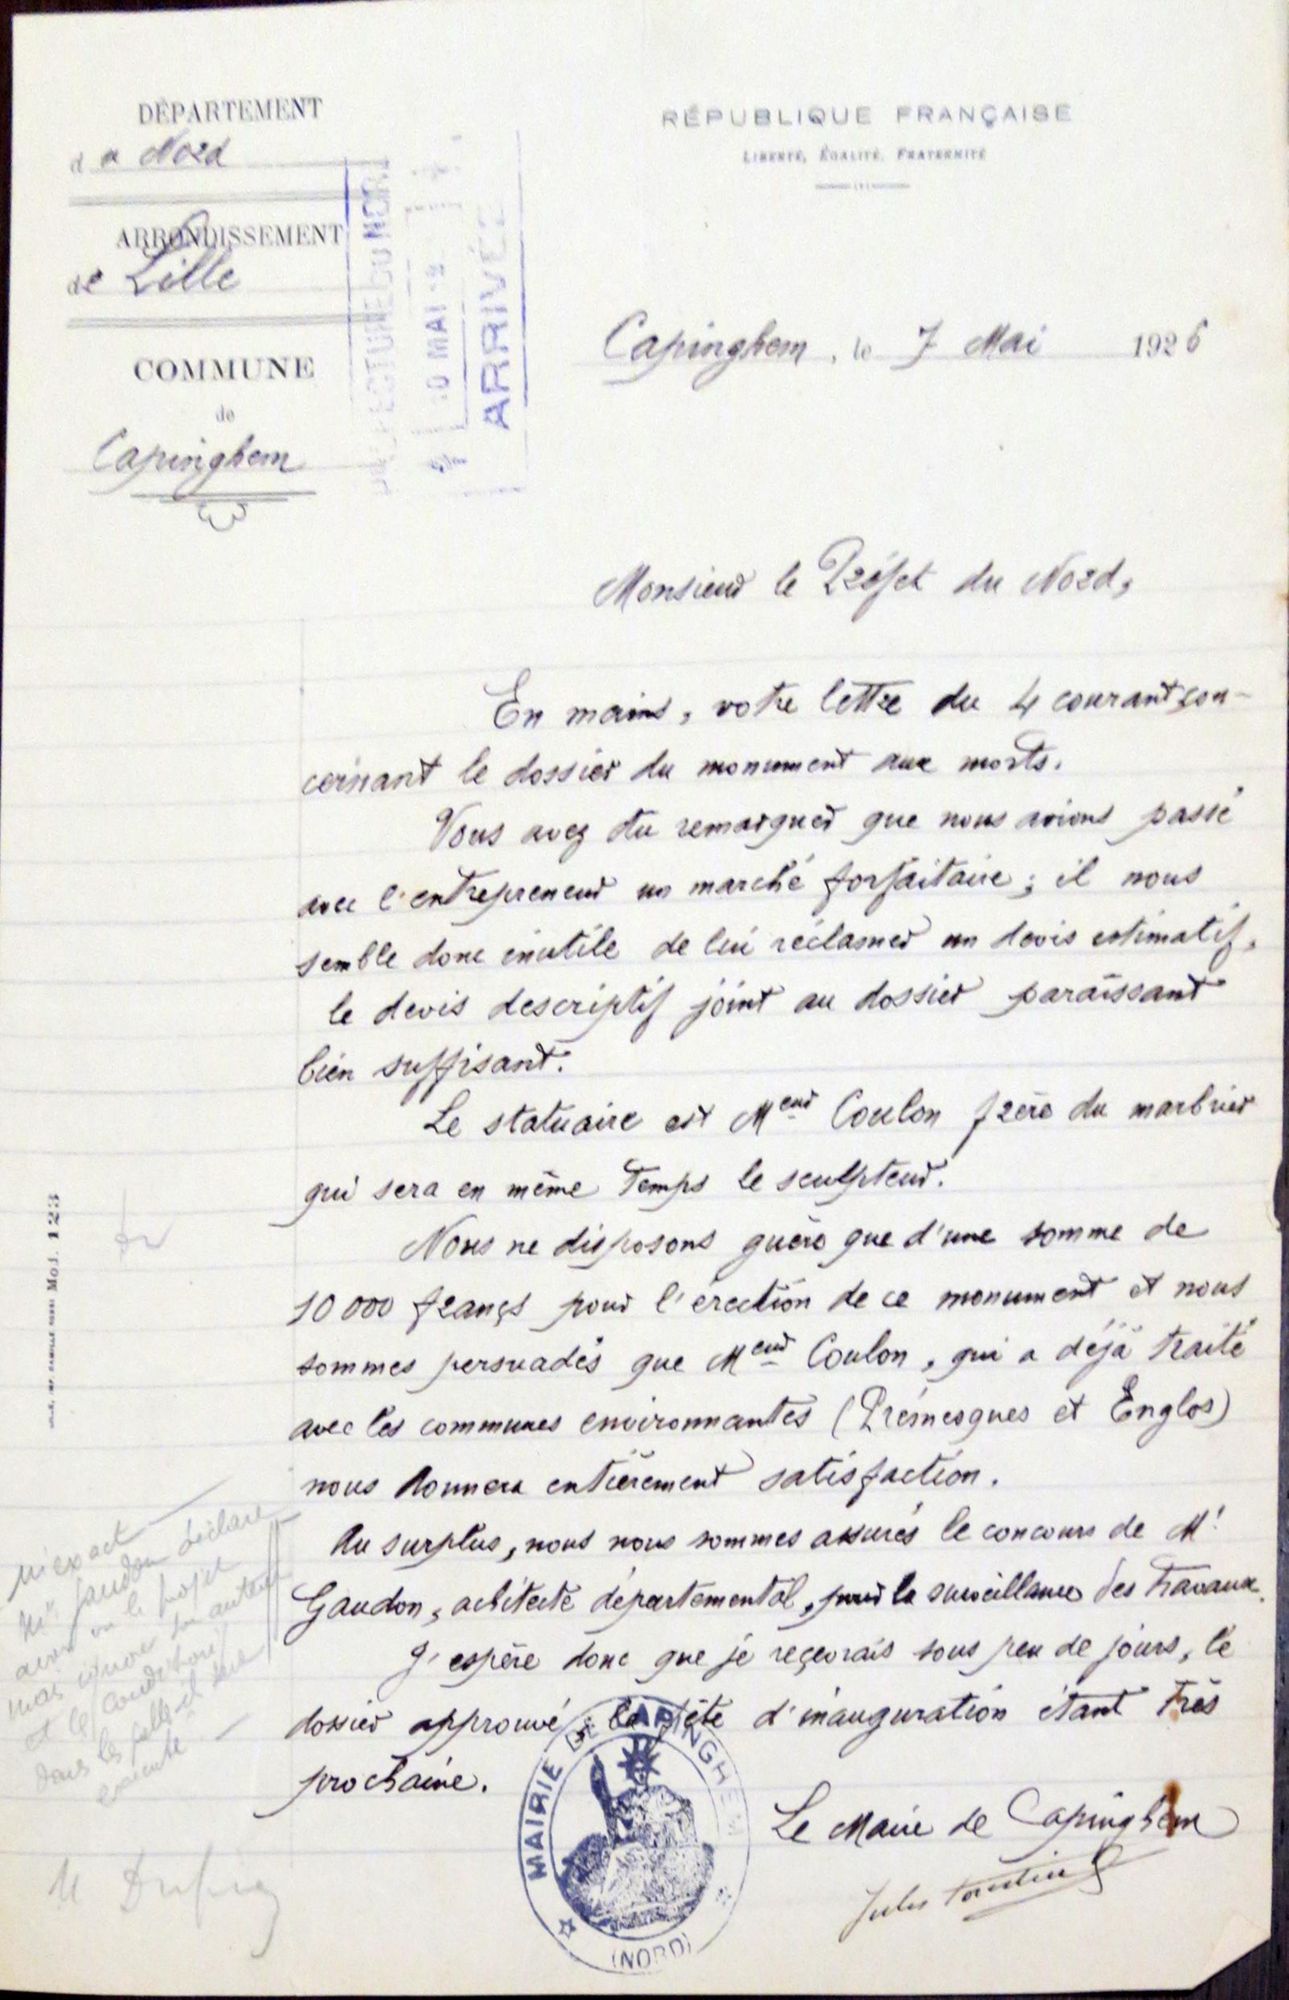 DÉPARTEMENT
du Nord
ARRONDISSEMENT
de Lille
COMMUNE
de
Capinghem
RÉPUBLIQUE FRANÇAISE
LIBERTÉ, ÉGALITÉ, FRATERNITÉ
PRÉFECTURE DU NORD
10 MAI
ARRIVÉE
Capinghem, le 7 Mai 1926
Monsieur le Préfet du Nord,
En mains, votre lettre du 4 courant, con-
cernant le dossier du monument aux morts.
Vous avez du remarquer que nous avions passé
avec l'entrepreneur un marché forfaitaire ; il nous
semble donc inutile de lui réclamer un devis estimatif,
le devis descriptif joint au dossier paraîssant
bien suffisant.
Le statuaire est Meur Coulon frère du marbrier
qui sera en même temps le sculpteur.
Nous ne disposons guère que d'une somme de
10 000 françs pour l'érection de ce monument et nous
sommes persuadés que Meur Coulon, qui a déjà traité
avec les communes environnantes (Prémesques et Englos)
nous donnera entièrement satisfaction.
Au surplus, nous nous sommes assurés le concours de Mr
Gaudon, achitecte départemental, pour la surveillance des travaux.
J'espère donc que je reçevrais sous peu de jours, le
dossier approuvé, la fête d'inauguration étant très
prochaine.
Le Maire de Capinghem
Jules
MAIRIE DE CAPINGHEM
(NORD)
Mod. 123
inexact
Mr Gaudon déclare
avoir vu le projet
mais ignorer son auteur
et les conditions
dans lesquelles il sera
exécuté